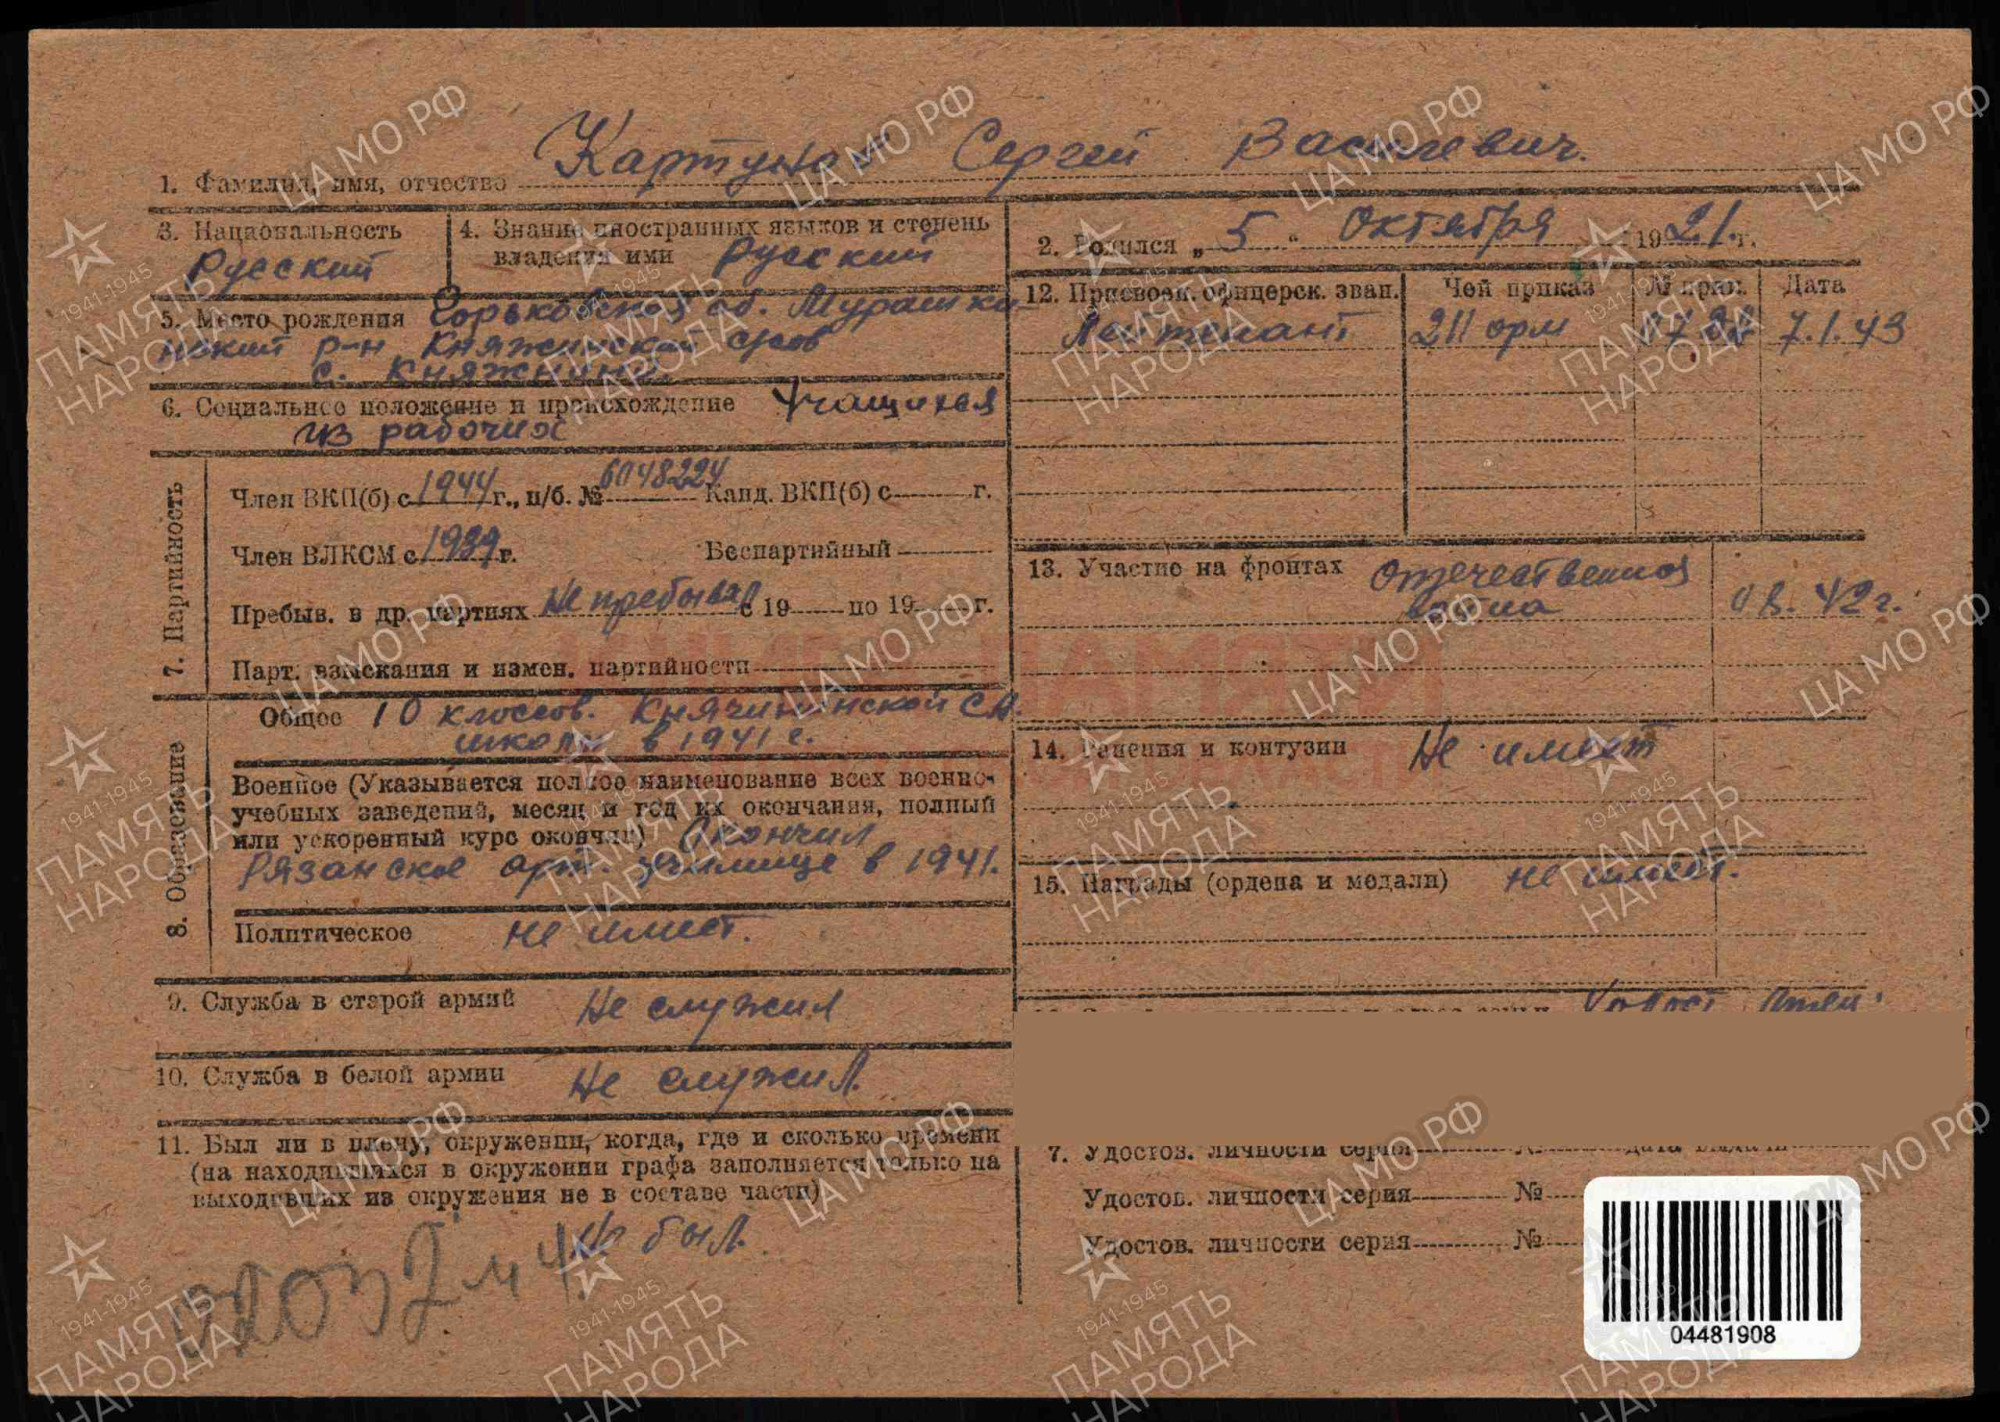 1. Фамилия, имя, отчество Картунов Сергей Василевич.
3. Национальность
Русский
4. Знание иностранных языков и степень
владения ими Русский
2. Родился „ 5 “ Октября 1921. г.
5. Место рождения Горьковской об. Мурашки-
нский р-н Княжинский
с.
6. Социальное положение и происхождение Учащихся
из рабочих
7. Партийность
Член ВКП(б) с 1944 г., п/б. № 6048224 Канд. ВКП(б) с г.
Член ВЛКСМ с 1939 г. Беспартийный
Пребыв. в др. партиях Не пребывал с 19 по 19 г.
Парт. взыскания и измен. партийности
8. Образование
Общее 10 классов.
школы в 1941 г.
Военное (Указывается полное наименование всех военно-
учебных заведений, месяц и год их окончания, полный
или ускоренный курс окончил) Окончил
Рязанское арт. училище в 1941.
Политическое не имеет.
9. Служба в старой армии Не служил
10. Служба в белой армии Не служил.
11. Был ли в плену, окружении, когда, где и сколько времени
(на находившихся в окружении графа заполняется только на
выходивших из окружения не в составе части)
Не был.
12. Присвоен. офицерск. зван. Чей приказ № прик. Дата
Лейтенант 211 7.1.43
13. Участие на фронтах Отечественная
война 42 г.
14. Ранения и контузии Не имеет
15. Награды (ордена и медали) не имеет.
Холост
7. Удостов. личности серия № дата выдачи
Удостов. личности серия №
Удостов. личности серия №
04481908
ЦА МО РФ
1941-1945
ПАМЯТЬ
НАРОДА